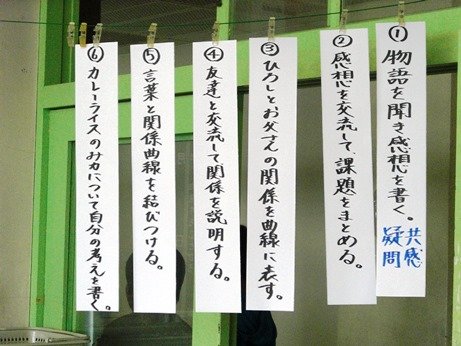 ① 物語を聞き感想を書く。
共感
疑問
② 感想を交流して課題をまとめる。
③ ひろしとお父さんの関係を曲線に表す。
④ 友達と交流して関係を説明する。
⑤ 言葉と関係曲線を結びつける。
⑥ カレーライスのみ力について自分の考えを書く。